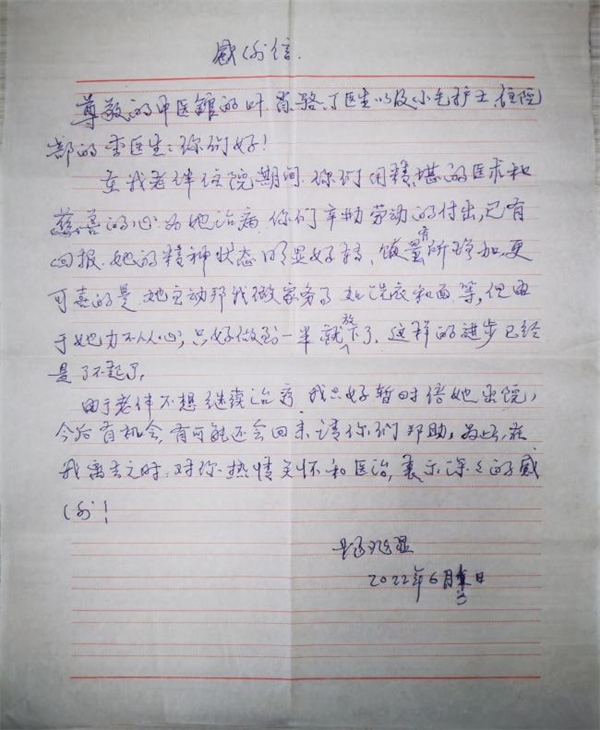 感谢信.
尊敬的甲医馆的叶、肖、骆、丁医生以及小毛护士、住院
部的李医生：你们好！
在我老伴住院期间.你们用精堪的医术和
慈善的心.为她治病.你们辛勤劳动的付出，已有
回报.她的精神状态明显好转、饭量有所增加.更
可喜的是她主动帮我做家务了.如洗衣和面等，但由
于她力不从心，只好做到一半就放下了.这样的进步已经
是了不起了.
由于老伴不想继续治疗.我只好暂时倍她出院，
今后有机会，有可能还会回来请你们帮助，为此，在
我离去之时.对你热情关怀和医治，表示深深的感
谢！
2022年6月 日